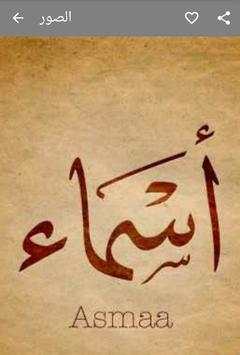 الصور
أسماء
Asmaa